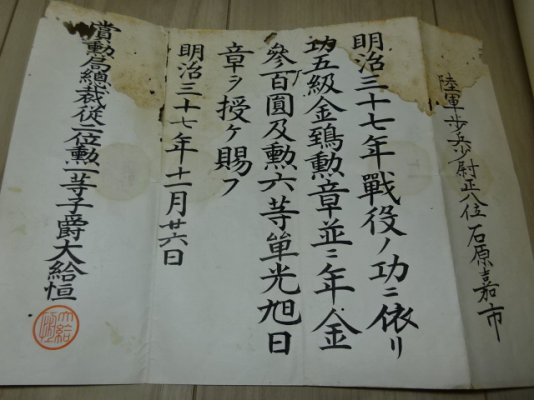 陸軍步兵少尉正八位石原嘉市
明治三十七年戰役ノ功ニ依リ
功五級金鵄勲章並ニ年金
參百圓及勲六等單光旭日
章ヲ授ケ賜フ
明治三十七年十一月廿六日
賞勲局總裁從二位勲一等子爵大給恒
大給